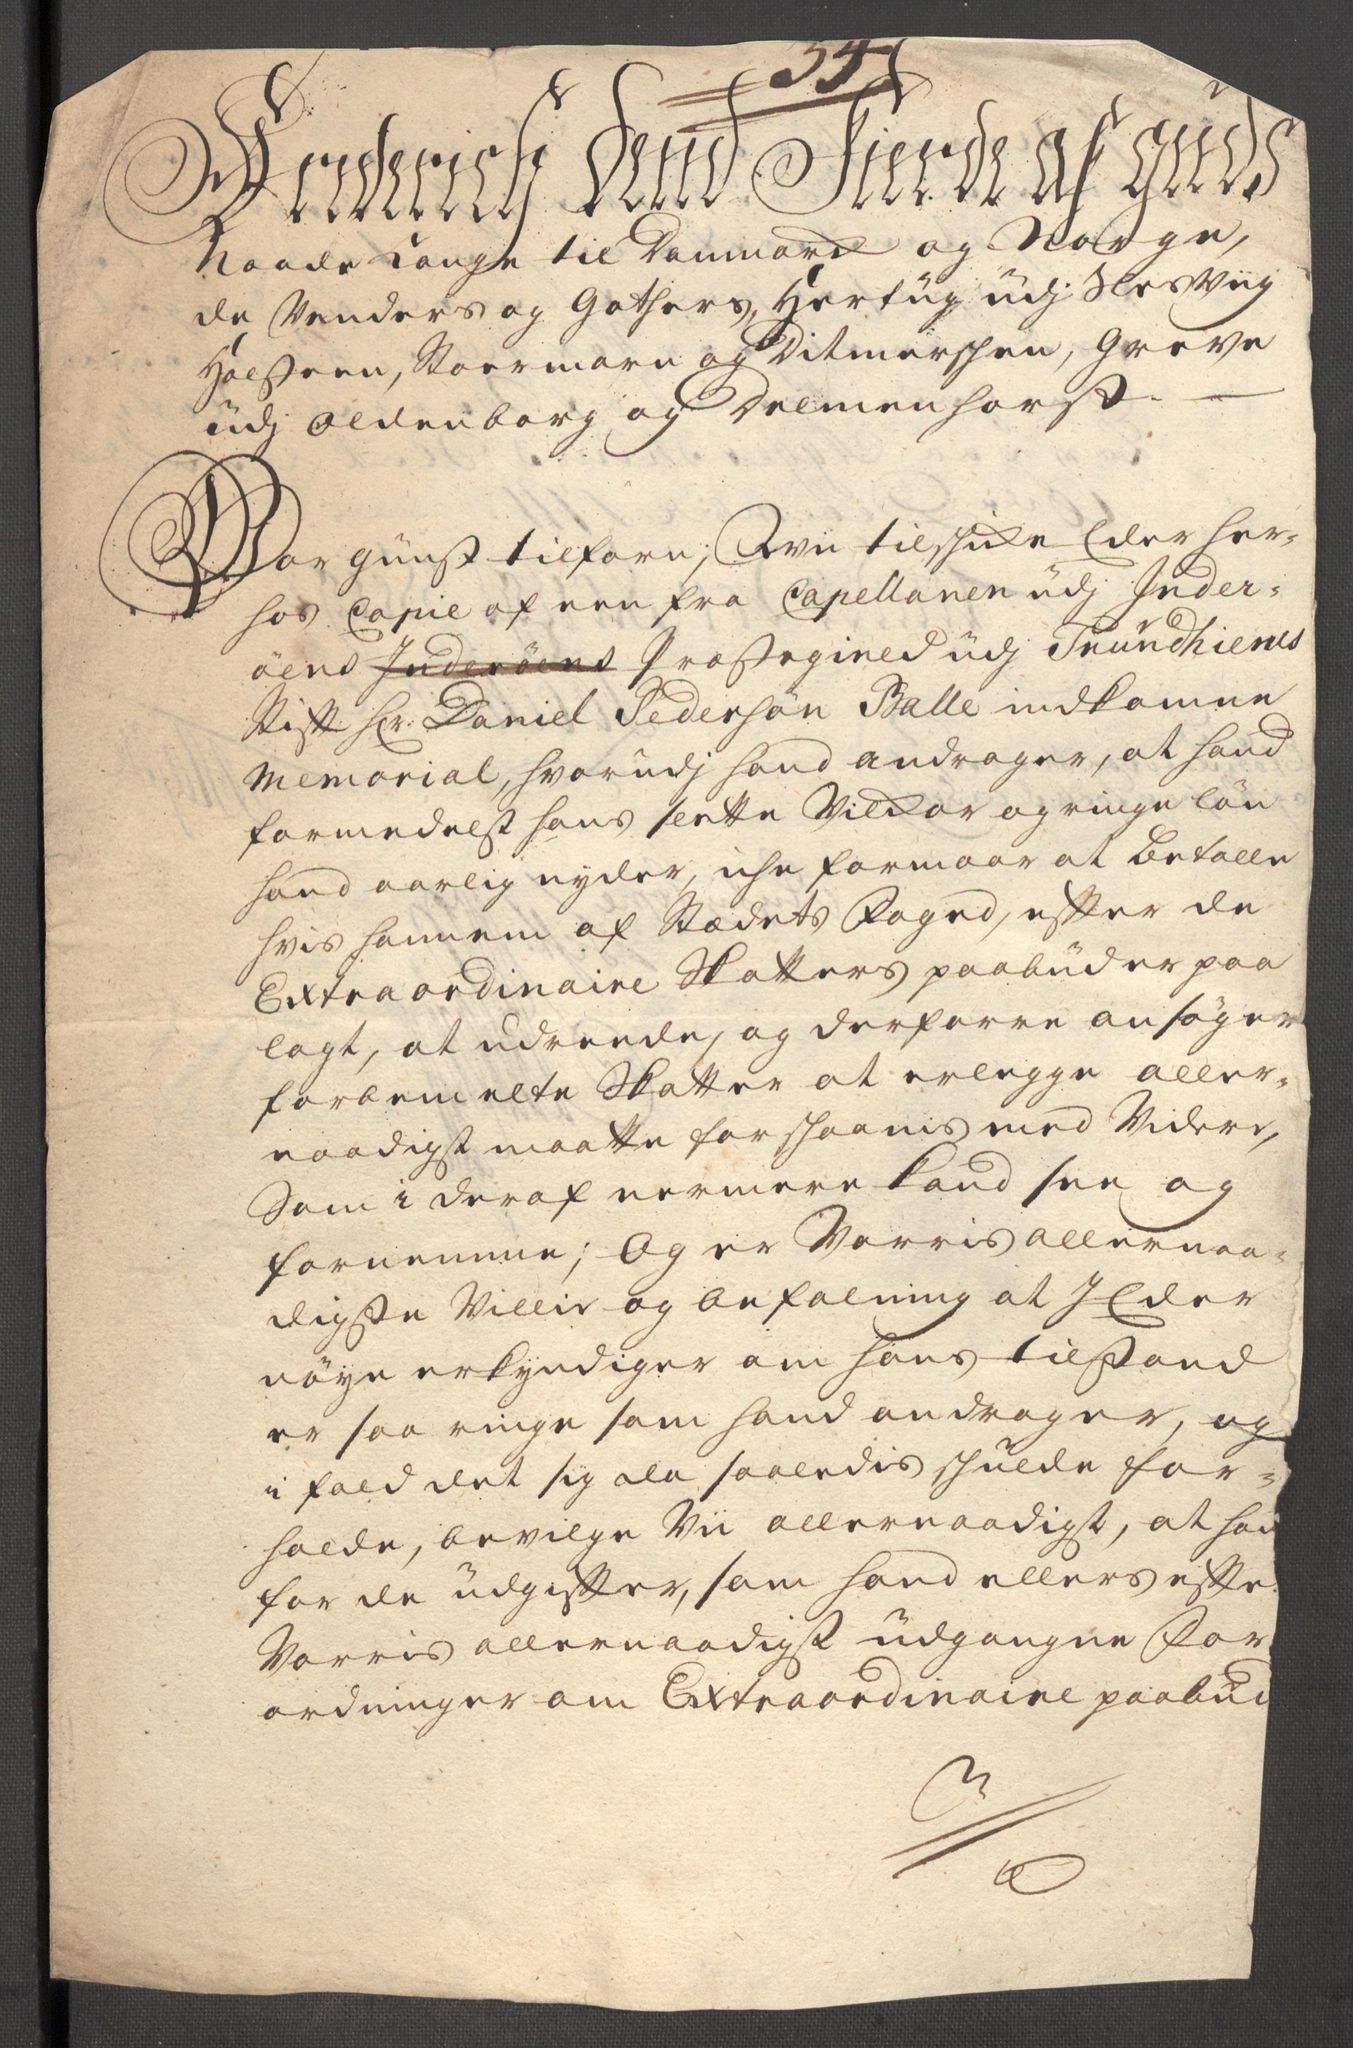 34
Friderich dend Fierde af Guds
Naade Konge til Danmarck og Norge,
de Venders og Gothers, Hertug udj Slesvig
Holsteen, Stormarn og Ditmerschen, Greve
udj Oldenborg og Delmenhorst. —
Vor gunst tilforn; Wii tilskicke Eder her-
hos Copie af een fra Capellanen udj Inder-
öens Inderöens Præstegield udj Trundhiems
Stift hr. Daniel Pedersön Balle indkomne
Memorial, hvorudj hand andrager, at hand
formedelst hans slette Vilckor og ringe lön
hand aarlig nyder, iche formaar at betalle
hvis hannem af Stædets Foged, efter de
Extraordinaire Skatters paabuder paa
lagt, at udreede, og derforre ansöger
forbemelte Skatter at erlegge aller-
naadigst maatte forskaanis med Videre,
Som i deraf nermere kand see og
fornemme; Og er Vorris allernaa-
digste Villie og befalning at I Eder
nöye erkyndiger om hans tilstand
er saa ringe som hand andrager, og
i fald det sig da saaledis skulde for-
holde, bevilge Vii allernaadigst, at han
for de udgifter, som hand ellers efte
Vorris allernaadigst udgangne For
ordninger om Extraordinaire paabud